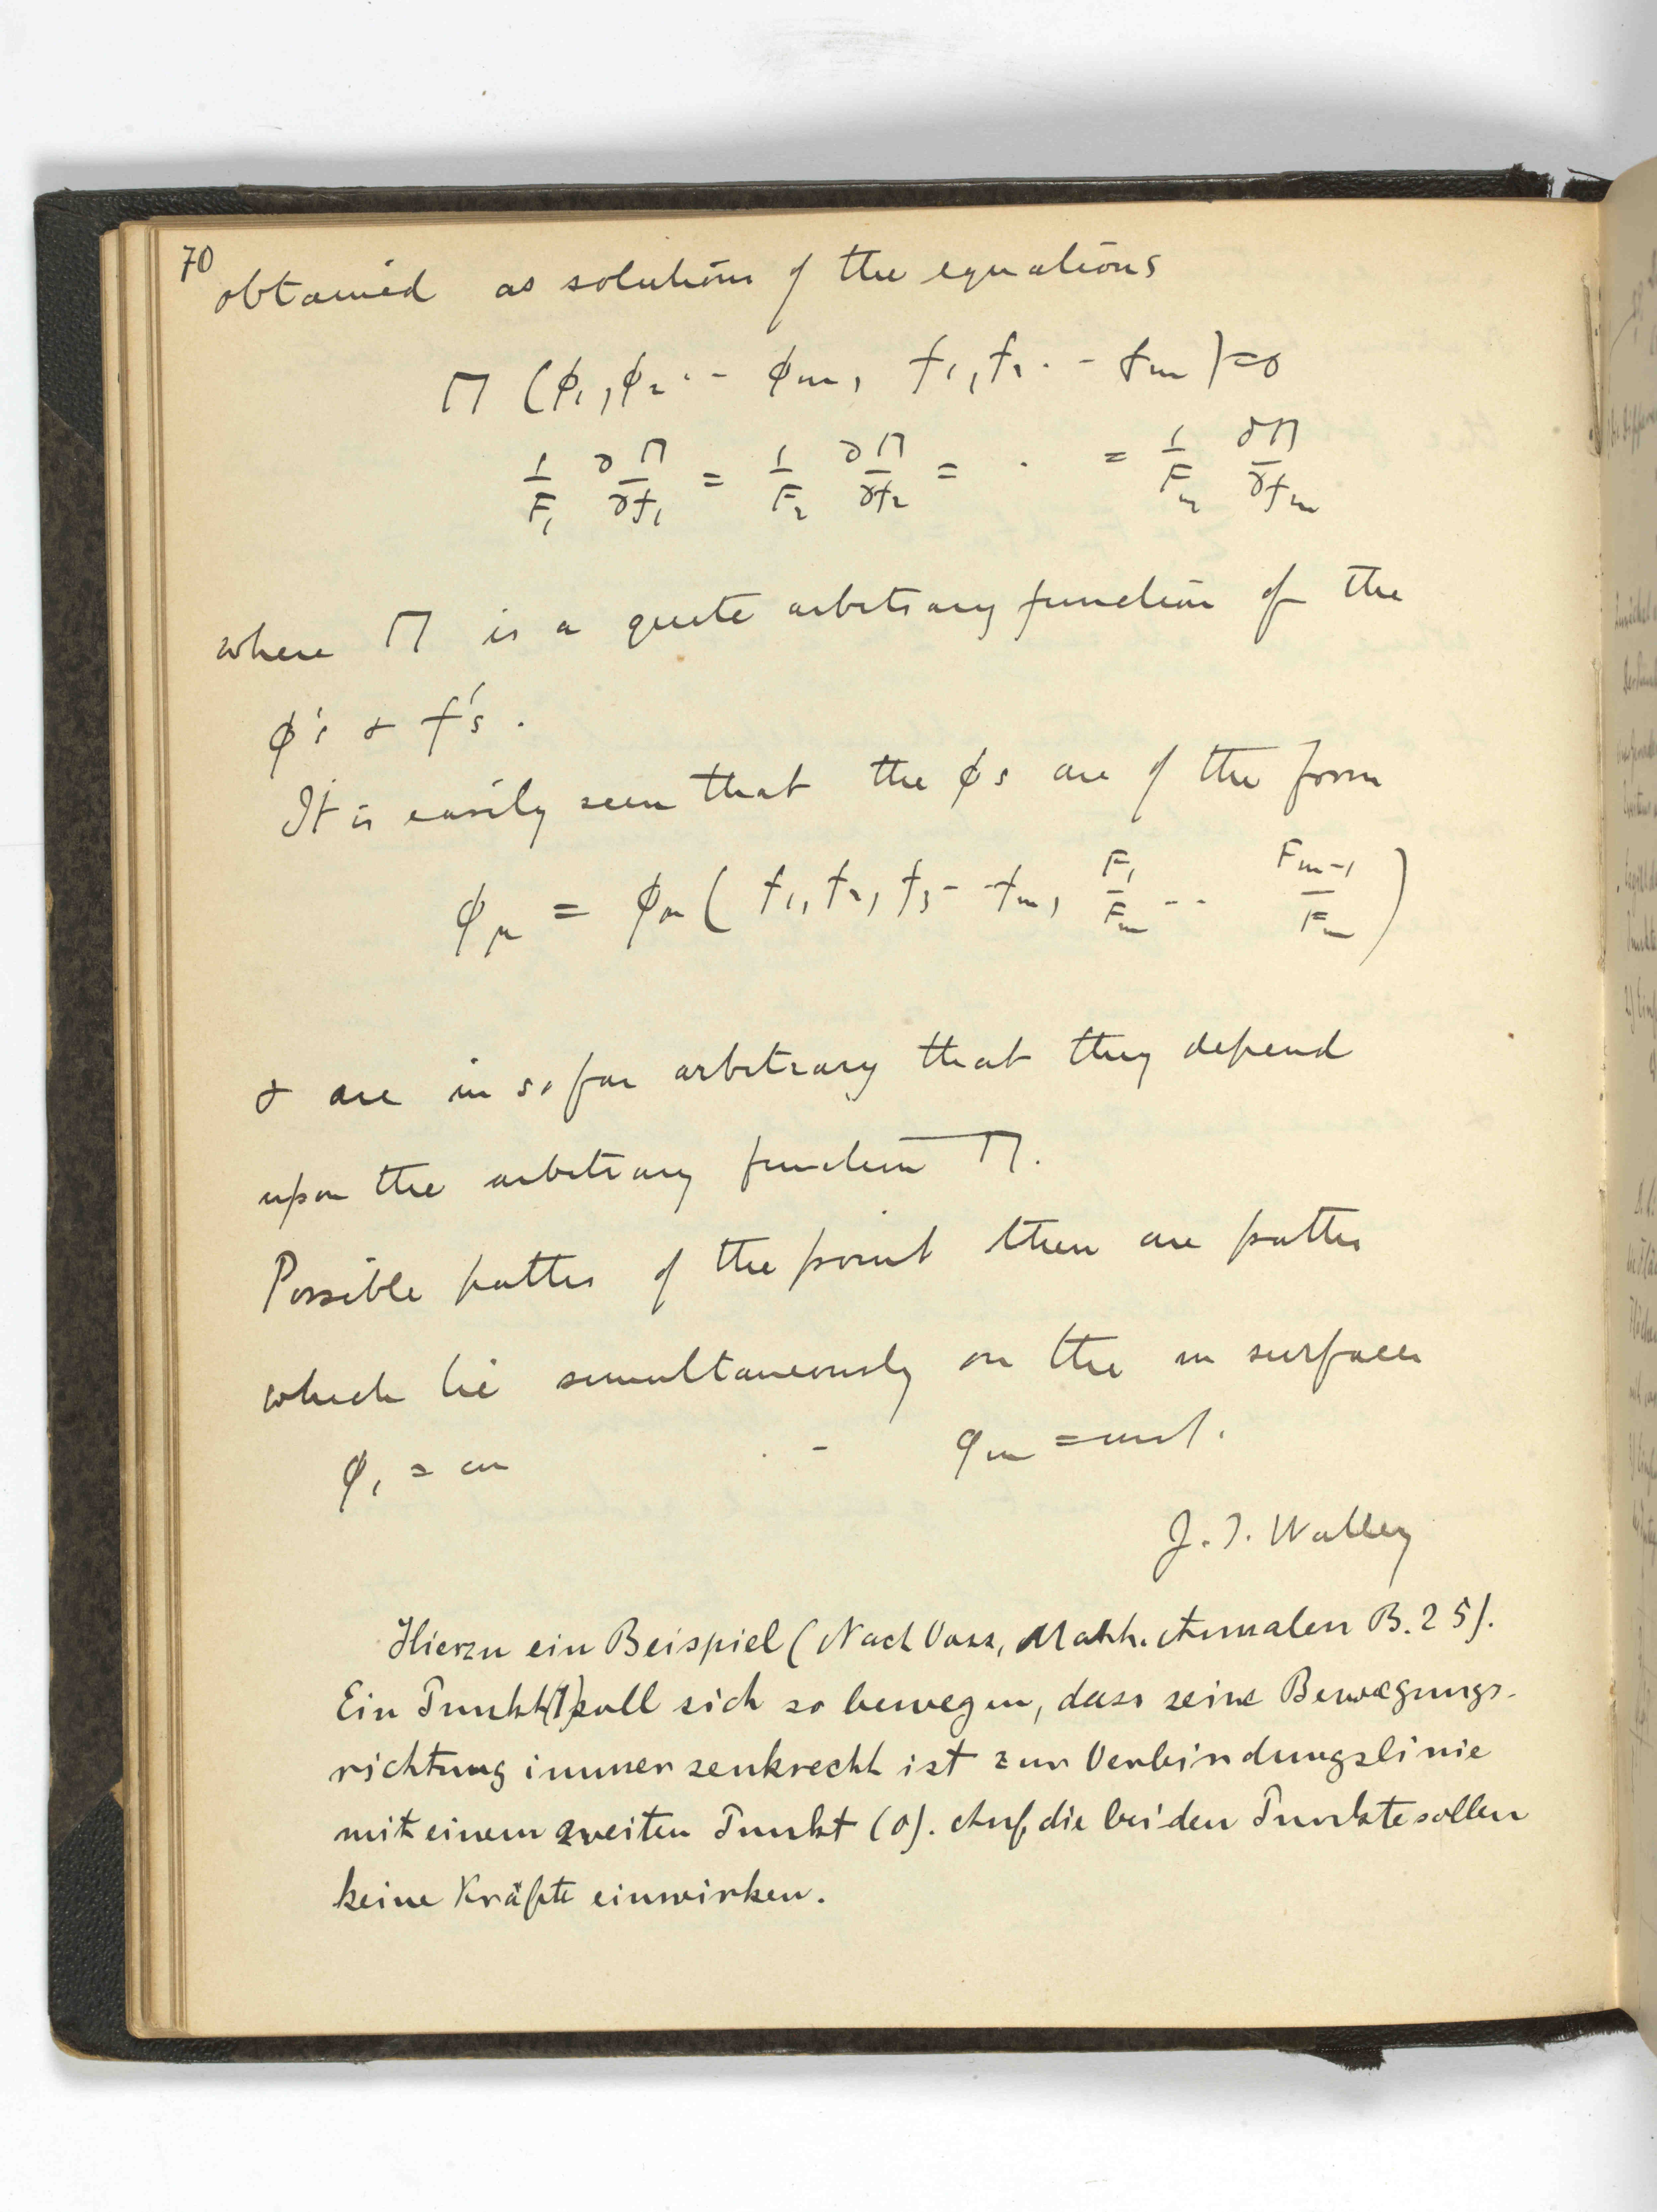 70
obtained as solutions of the equations
Π (ϕ₁, ϕ₂ · - ϕₘ, f₁, f₂ · - fₘ) = 0
1/F₁ ∂Π/∂f₁ = 1/F₂ ∂Π/∂f₂ = · = 1/Fₘ ∂Π/∂fₘ
where Π is a quite arbitrary function of the
ϕ's & f's.
It is easily seen that the ϕs are of the form
ϕμ = ϕμ ( f₁, f₂, f₃ - - fₘ, F₁/Fₘ - - Fₘ₋₁/Fₘ )
& are in so far arbitrary that they depend
upon the arbitrary function Π.
Possible paths of the point then are paths
which lie simultaneously on the m surfaces
ϕ₁ = · - φₘ = const.
Hierzu ein Beispiel (Nach Voss, Math. Annalen B. 25).
Ein Punkt (1) soll sich so bewegen, dass seine Bewegungs-
richtung immer senkrecht ist zur Verbindungslinie
mit einem zweiten Punkt (0). Auf die beiden Punkte sollen
keine Kräfte einwirken.